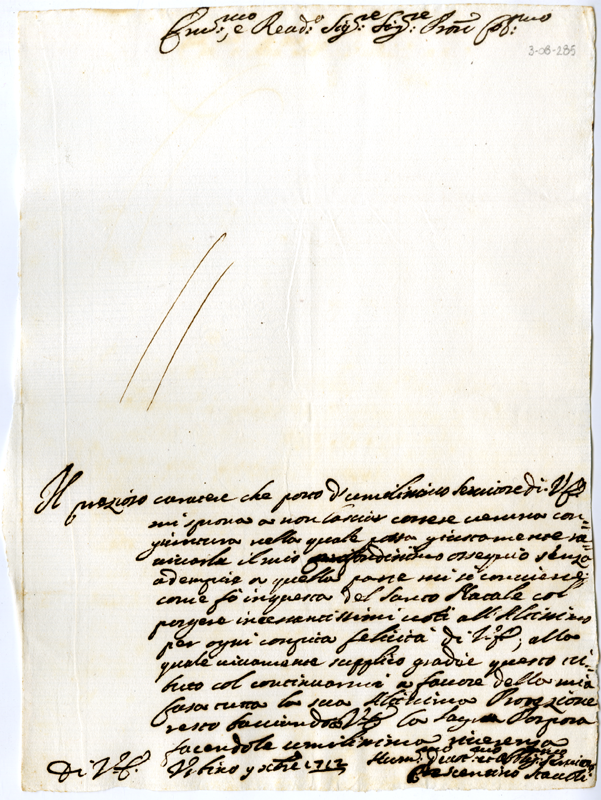 Em.mo, e Reud.o Sig.re Sig.re Pron. Col.mo
3-08-285
Il prezioso carattere che porto d'umilissimo Seruitore di V.E.
mi sprona a non lasciar correre ueruna con=
giuntura nella quale possa giustamente ra=
uiuarle il mio ossequio senza
adempire a quella parte mi si conuiene:
come fò in questa del Santo Natale col
porgere incessantissimi uoti all'Altissimo
per ogni compita felicità di V.E.; alla
quale uiuamente supplico gradire questo tri=
buto col continuarmi a fauore della mia
Casa tutta la sua Altissima Protezione
resto baciando a V.E. la Sagra Porpora
facendole umilissima riuerenza
Di V.E. Urbino 9 xbre 1717